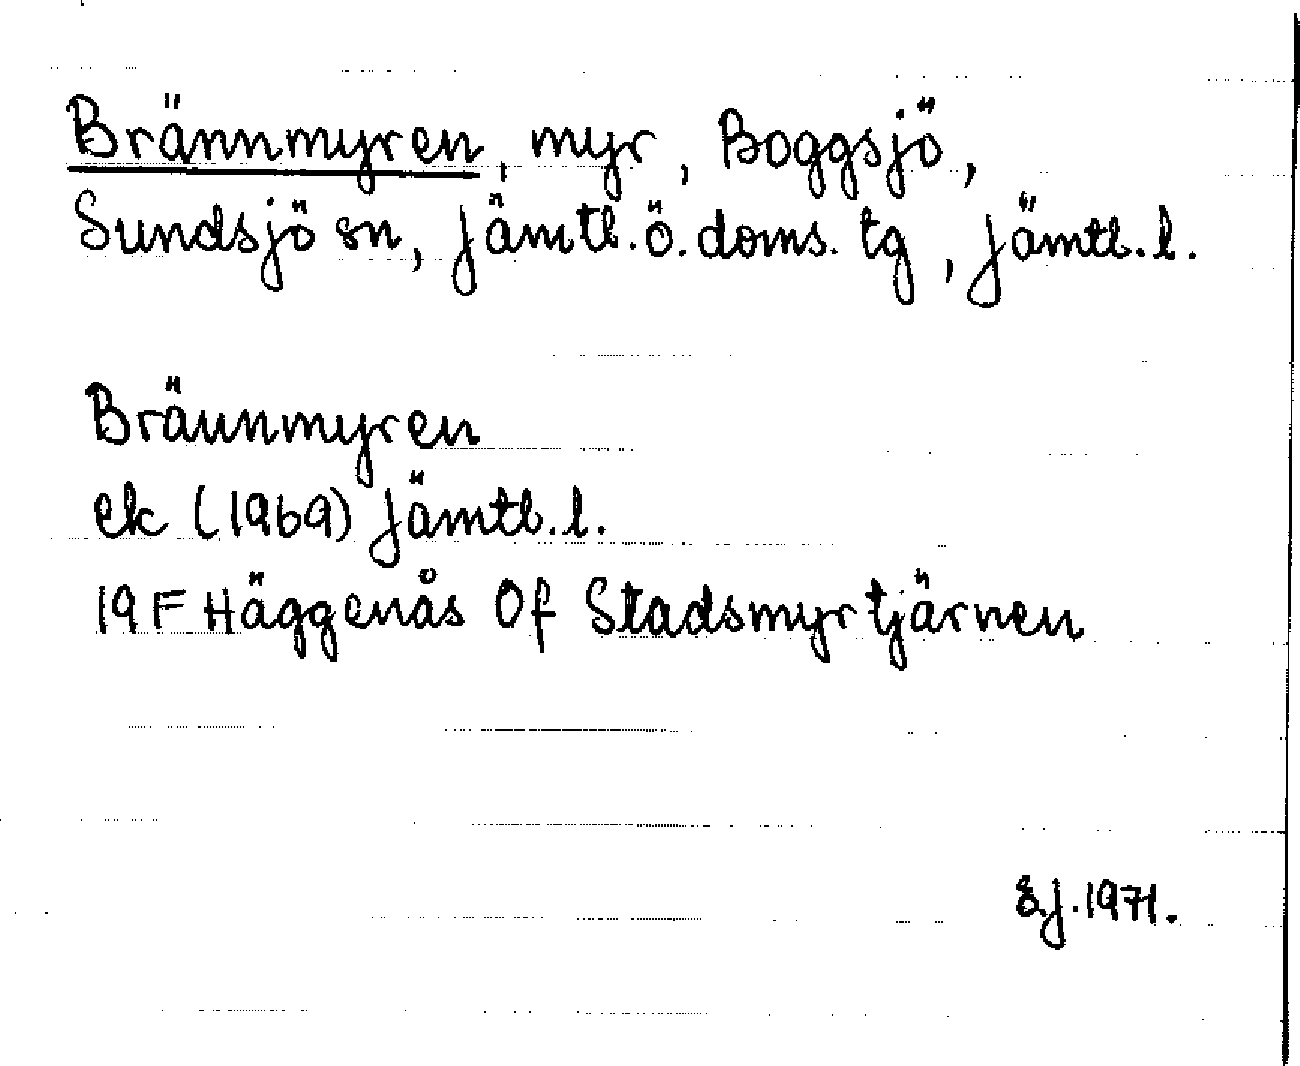 Brännmyren, myr, Boggsjö,
Sundsjö sn, Jämtl.ö.doms.tg, Jämtl.l.
Brännmyren
ek (1969) Jämtl.l.
19F Häggenås Of Stadsmyrtjärnen
EJ.1971.